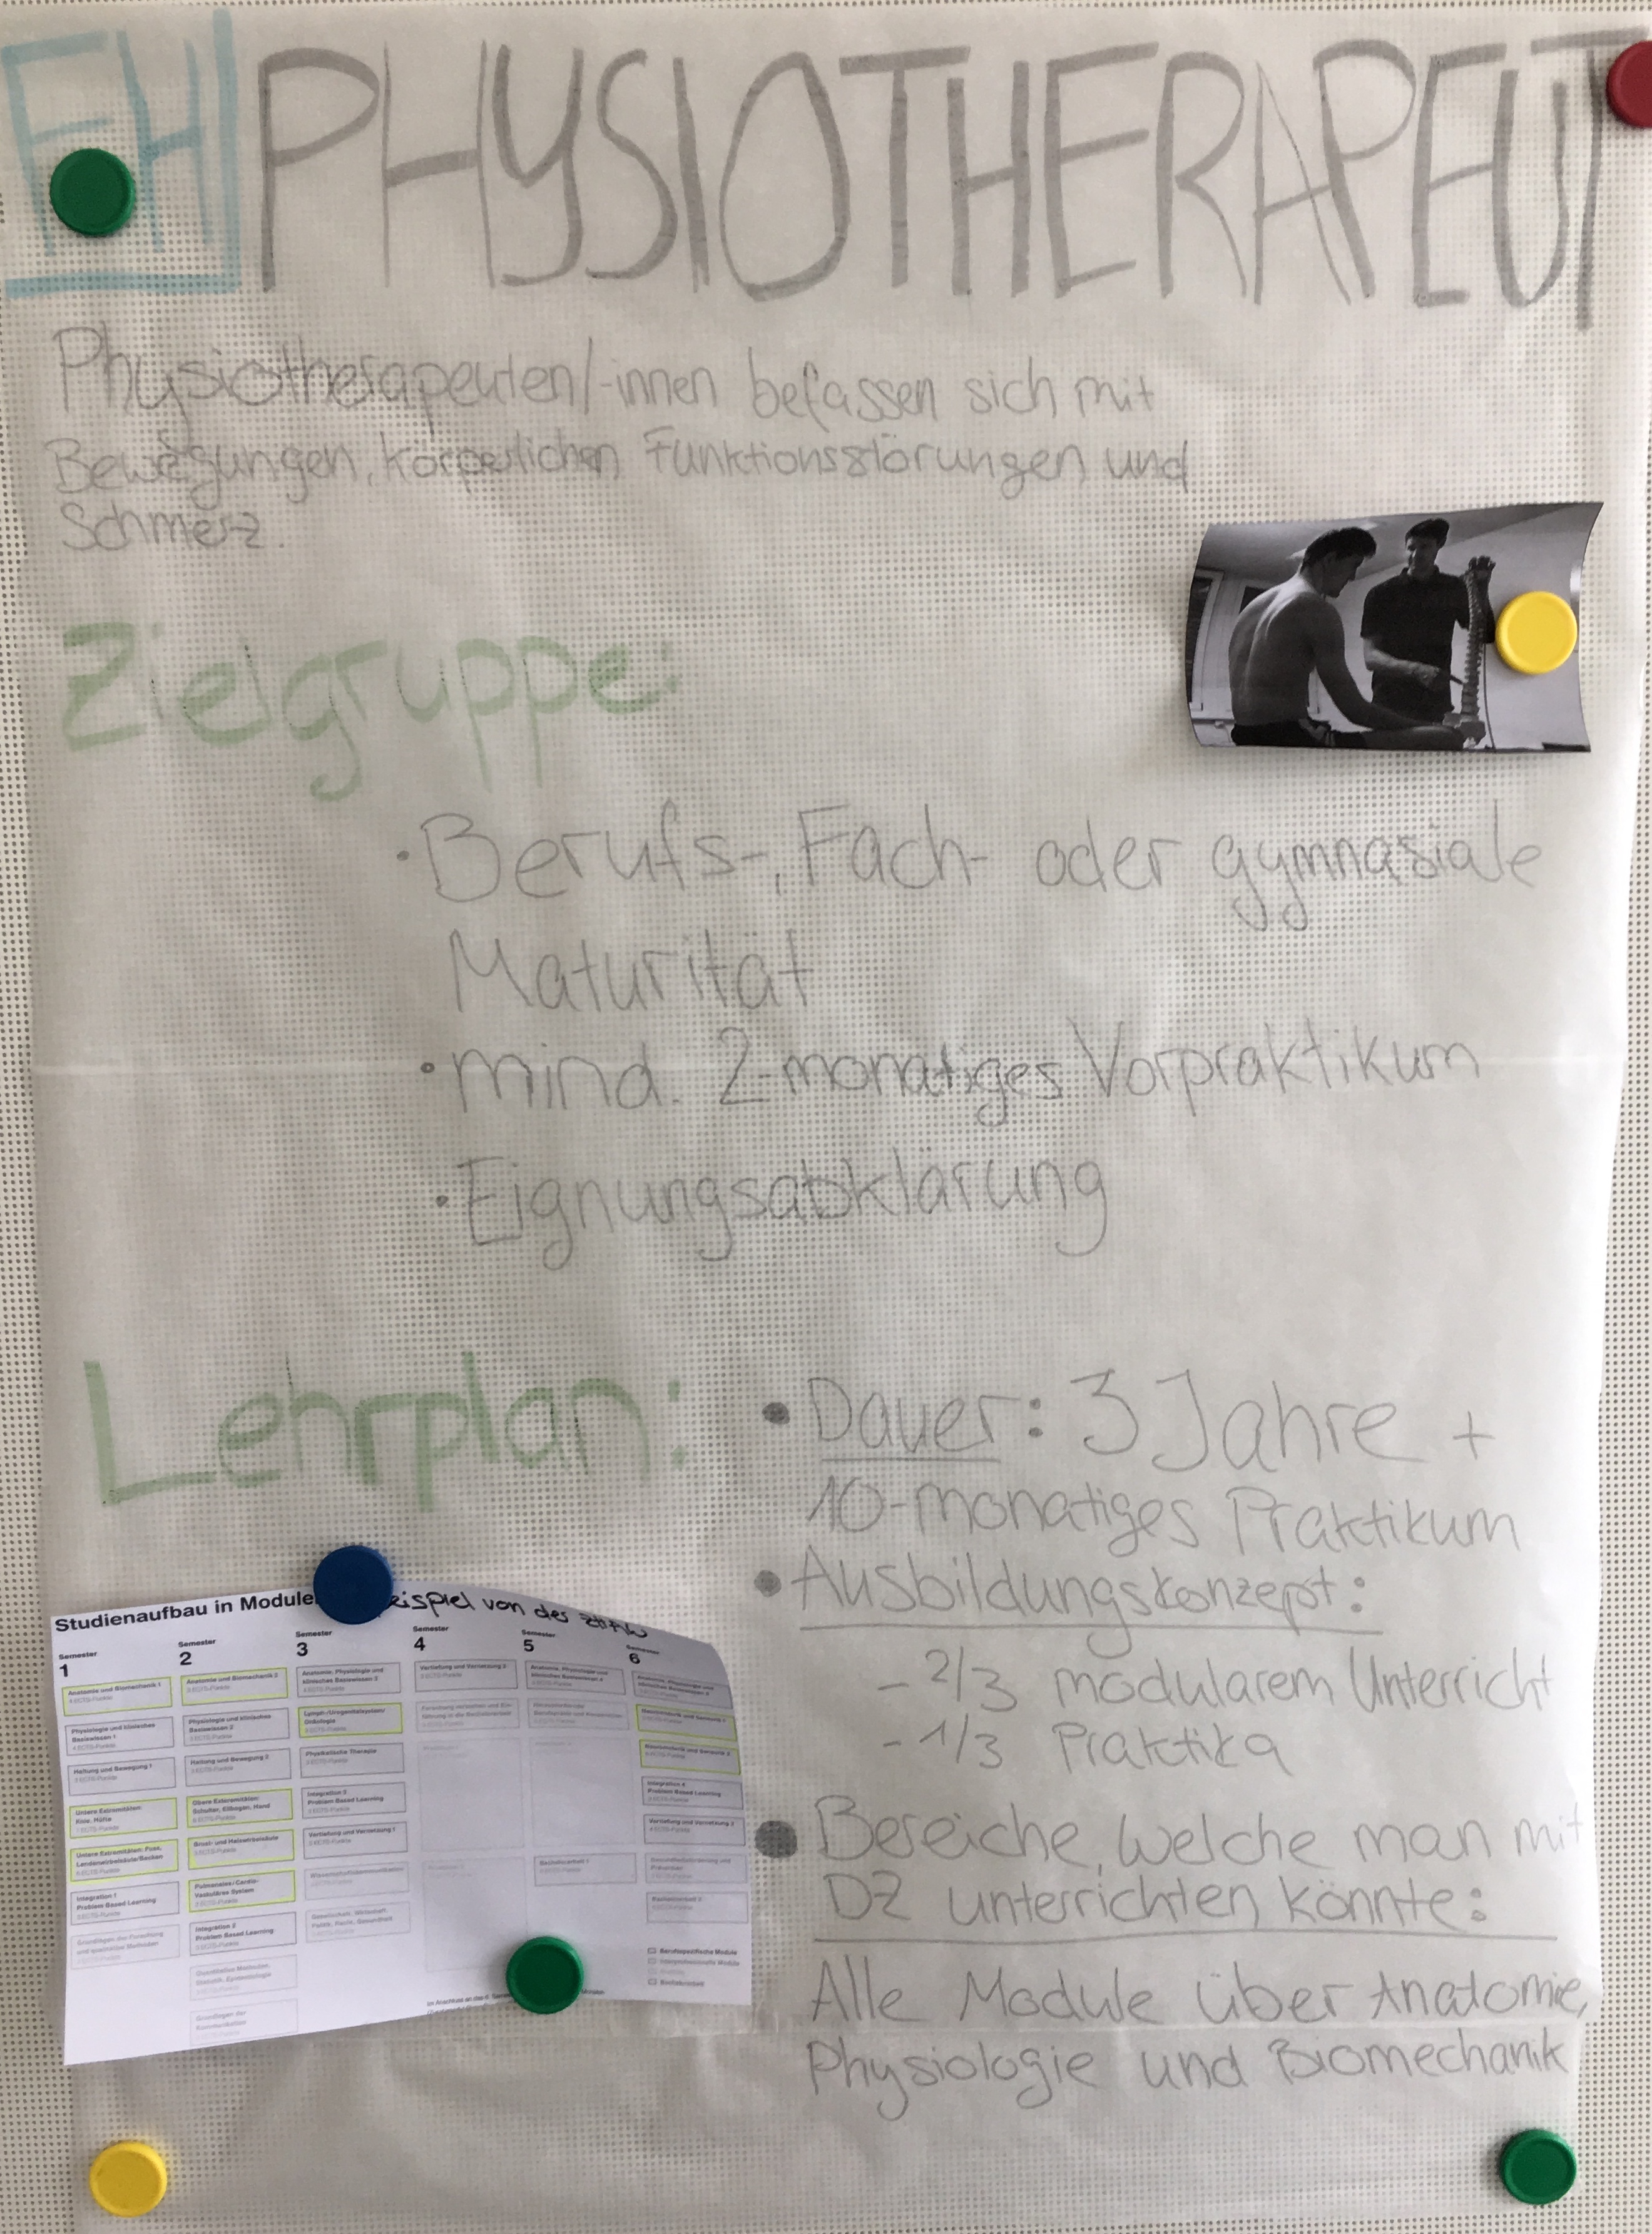 FH PHYSIOTHERAPEUT
Physiotherapeuten/-innen befassen sich mit
Bewegungen, körperlichen Funktionsstörungen und
Schmerz.
Zielgruppe:
• Berufs-, Fach- oder gymnasiale
Maturität
• mind. 2-monatiges Vorpraktikum
• Eignungsabklärung
Lehrplan:
• Dauer: 3 Jahre +
10-monatiges Praktikum
• Ausbildungskonzept:
- 2/3 modularem Unterricht
- 1/3 Praktika
• Bereiche, welche man mit
DZ unterrichten könnte:
Alle Module über Anatomie,
Physiologie und Biomechanik
Studienaufbau in Module
eispiel von der ZHAW
Semester
1
Anatomie und Biomechanik 1
4 ECTS-Punkte
Physiologie und klinisches
Basiswissen 1
4 ECTS-Punkte
Haltung und Bewegung 1
Untere Extremitäten:
Knie, Hüfte
Untere Extremitäten: Fuss,
Lendenwirbelsäule/Becken
Integration 1
Problem Based Learning
Grundlagen der Forschung
und qualitative Methoden
Semester
2
Anatomie und Biomechanik 2
Physiologie und klinisches
Basiswissen 2
Haltung und Bewegung 2
Obere Extremitäten:
Schulter, Ellbogen, Hand
Brust- und Halswirbelsäule
Pulmonales/Cardio-
Vaskuläres System
Integration 2
Problem Based Learning
Quantitative Methoden,
Statistik, Epidemiologie
Grundlagen der
Kommunikation
Semester
3
Anatomie, Physiologie und
klinisches Basiswissen 3
Lymph-/Urogenitalsystem/
Onkologie
Physikalische Therapie
Integration 3
Problem Based Learning
Vertiefung und Vernetzung 1
Gesellschaft, Wirtschaft,
Politik, Recht, Gesundheit
Semester
4
Vertiefung und Vernetzung 2
Semester
5
Anatomie, Physiologie und
klinisches Basiswissen 4
Bachelorarbeit 1
Semester
6
Anatomie, Physiologie und
klinisches Basiswissen 5
Neuromotorik und Sensorik 1
Neuromotorik und Sensorik 2
Integration 4
Problem Based Learning
Vertiefung und Vernetzung 3
Gesundheitsförderung und
Prävention
Bachelorarbeit 2
Berufsspezifische Module
Interprofessionelle Module
Bachelorarbeit